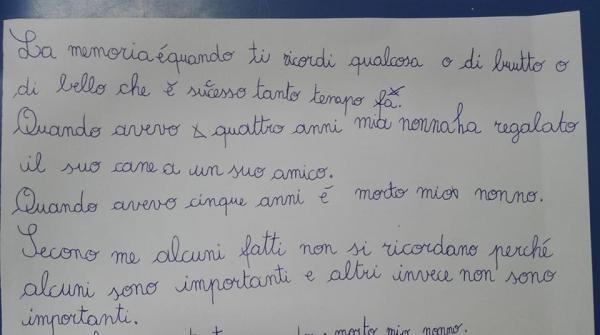 La memoria é quando ti ricordi qualcosa o di brutto o
di bello che è sucesso tanto tempo fa.
Quando avevo quattro anni mia nonna ha regalato
il suo cane a un suo amico.
Quando avevo cinque anni é morto mio nonno.
Secono me alcuni fatti non si ricordano perché
alcuni sono importanti e altri invece non sono
importanti.
morto mio nonno.